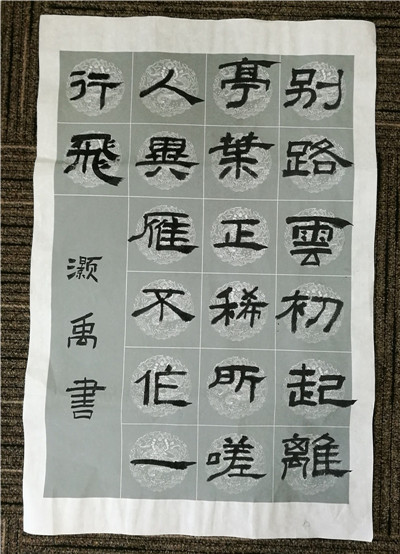 别路雲初起離
亭葉正稀所嗟
人異雁不作一
行飛
灏禹書